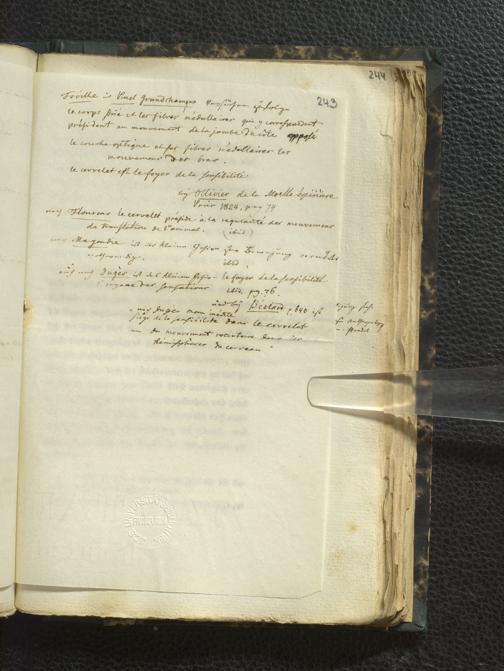 244
243
Foville u Pinel Grandchamps
le corps strié et les fibres médullaires qui y correspondent
président au mouvement de la jambe du côté opposé
la couche optique et ses fibres médullaires les
mouvemens des bras.
le cervelet est le foyer de la sensibilité
Ollivier de la Moelle épinière
Paris 1824, pag 74
nach Flourens le cervelet préside à la regularité des mouvemens
de translation de l'animal. (ibid.)
nach Magendie ist das kleine Gehirn zur Bewegung
nothwendig. ibid.
auch nach Dugès ist das kleine Gehirn le foyer de la sensibilité
l'organe des sensations ibid. pag. 76.
und bei Béclard p. 640
nach Dugès mém inédit
siège de la sensibilité dans le cervelet
du mouvement volontaire dans les
hémisphères du cerveau"